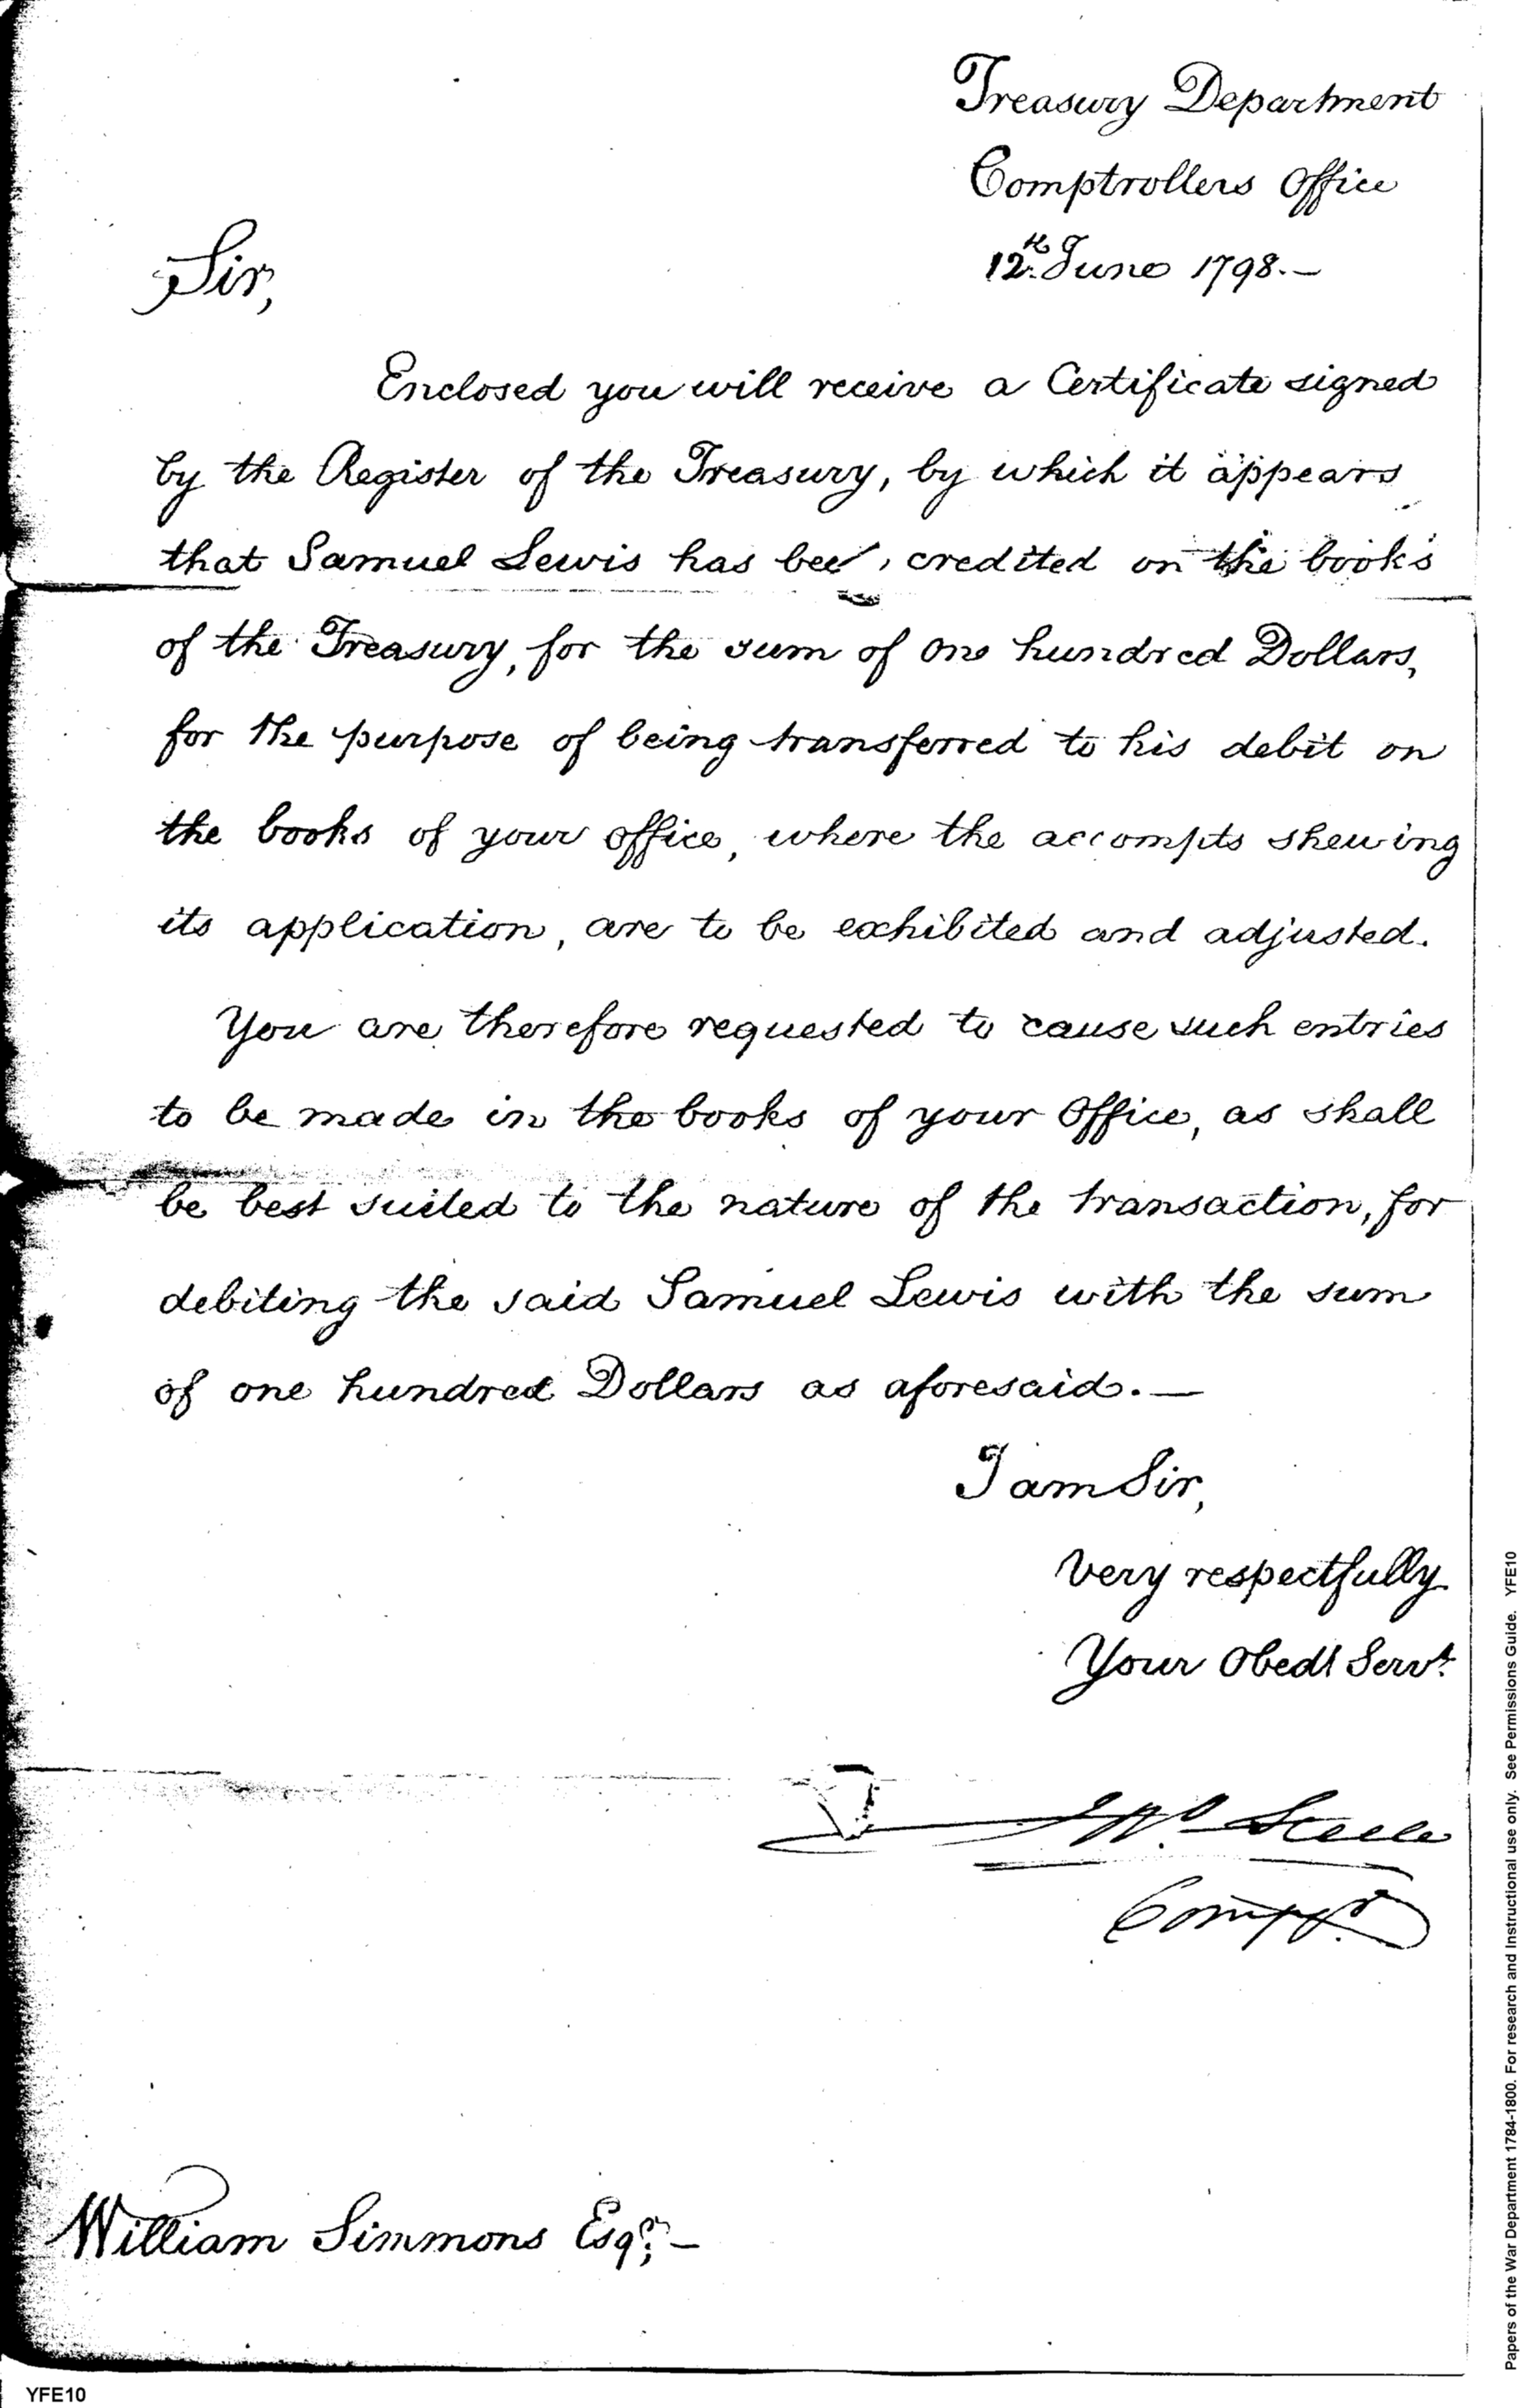 Treasury Department
Comptrollers Office
12th. June 1798.—
Sir,
Enclosed you will receive a Certificate signed
by the Register of the Treasury, by which it appears
that Samuel Lewis has bee, credited on the books
of the Treasury, for the sum of one hundred Dollars,
for the purpose of being transferred to his debit on
the books of your office, where the accompts shewing
its application, are to be exhibited and adjusted.
You are therefore requested to cause such entries
to be made in the books of your Office, as shall
be best suited to the nature of the transaction, for
debiting the said Samuel Lewis with the sum
of one hundred Dollars as aforesaid.—
I am Sir,
Very respectfully
Your Obedt Servt.
Jno. Steele
Compr.
William Simmons Esqr.—
YFE10
Papers of the War Department 1784-1800. For research and Instructional use only. See Permissions Guide. YFE10